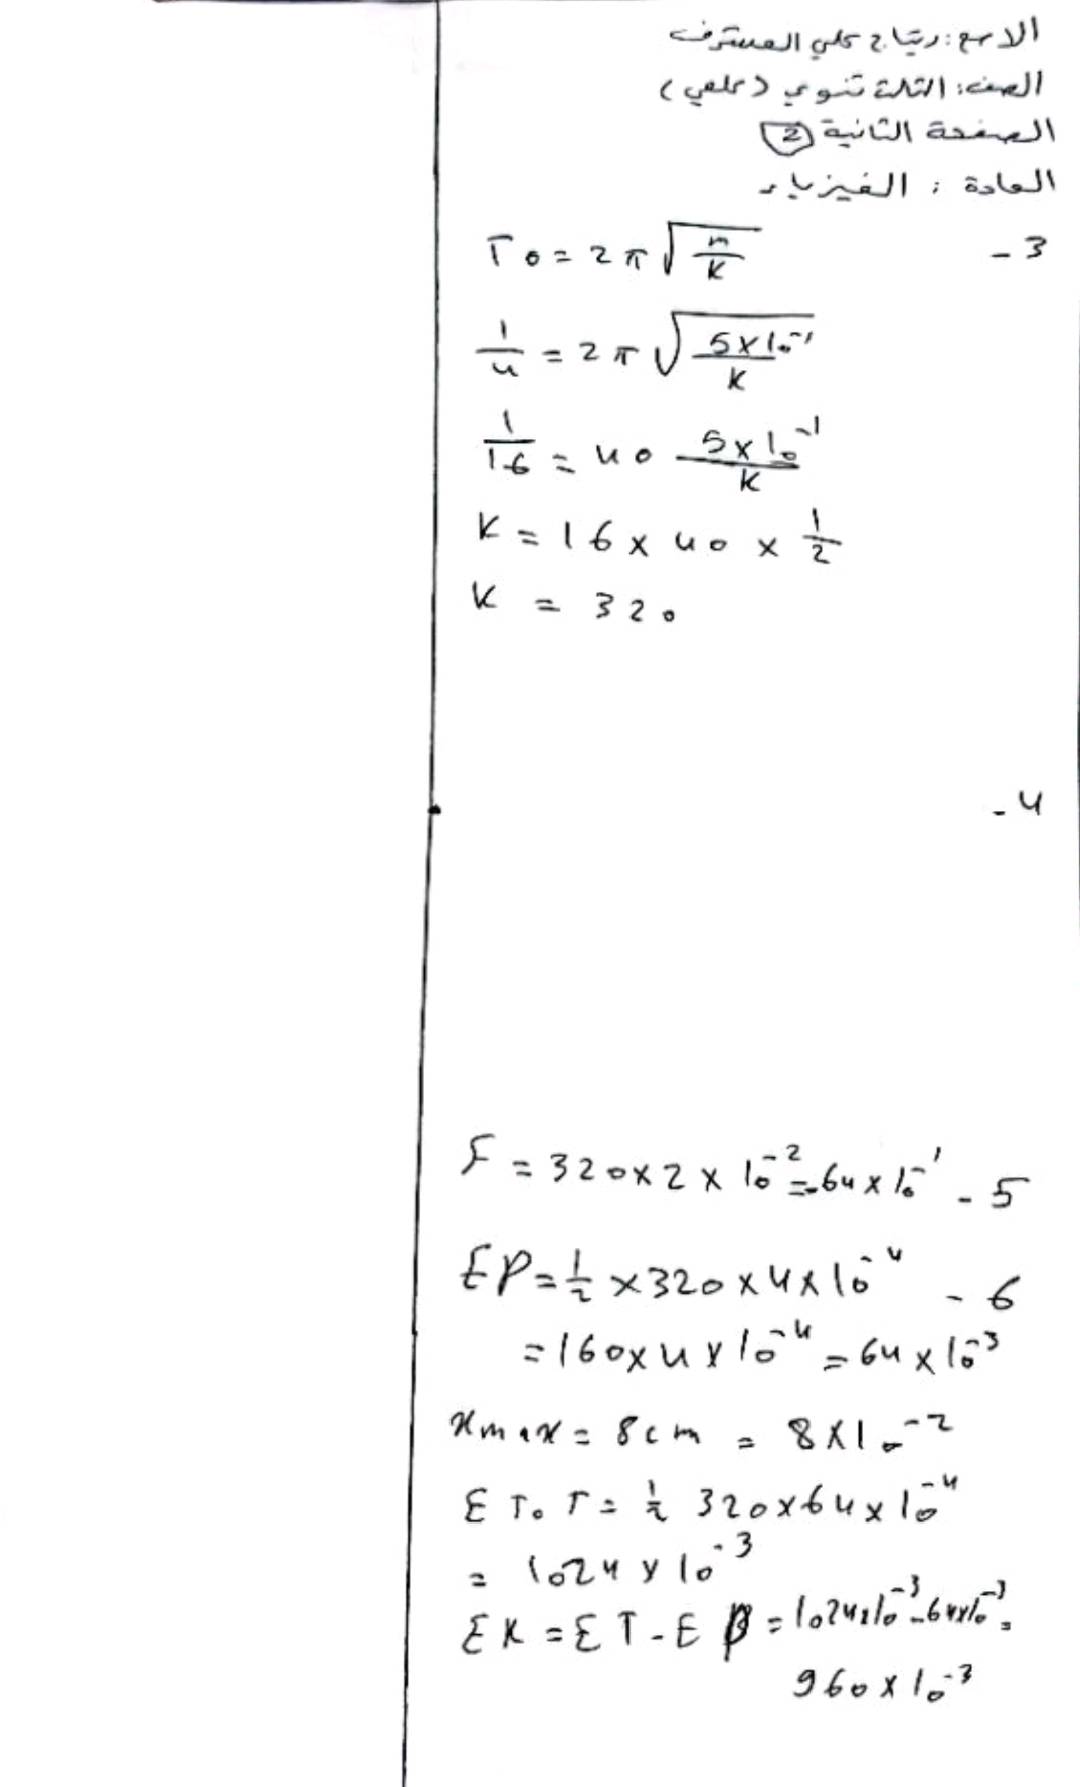 الاسم: رتاج علي المسترف
الصف: الثالث ثنوي (علمي)
الصفحة الثانية (2)
المادة : الفيزياء
3 - T0 = 2π√(m/K)
1/4 = 2π√(5×10^-1/K)
1/16 = 40 5×10^-1/K
K = 16 × 40 × 1/2
K = 320
4 -
5 - F = 320×2×10^-2 = 64×10^-1
6 - EP = 1/2 ×320×4×10^-4
= 160×4×10^-4 = 64×10^-3
Xmax = 8cm = 8×10^-2
ETOT = 1/2 320×64×10^-4
= 1024×10^-3
EK = ET - EP = 1024×10^-3 - 64×10^-3 =
960×10^-3